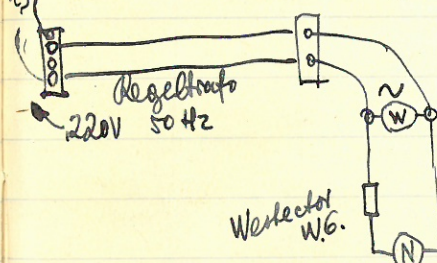 Regeltrafo
220V 50 Hz
~
W
Westector
W.6.
N